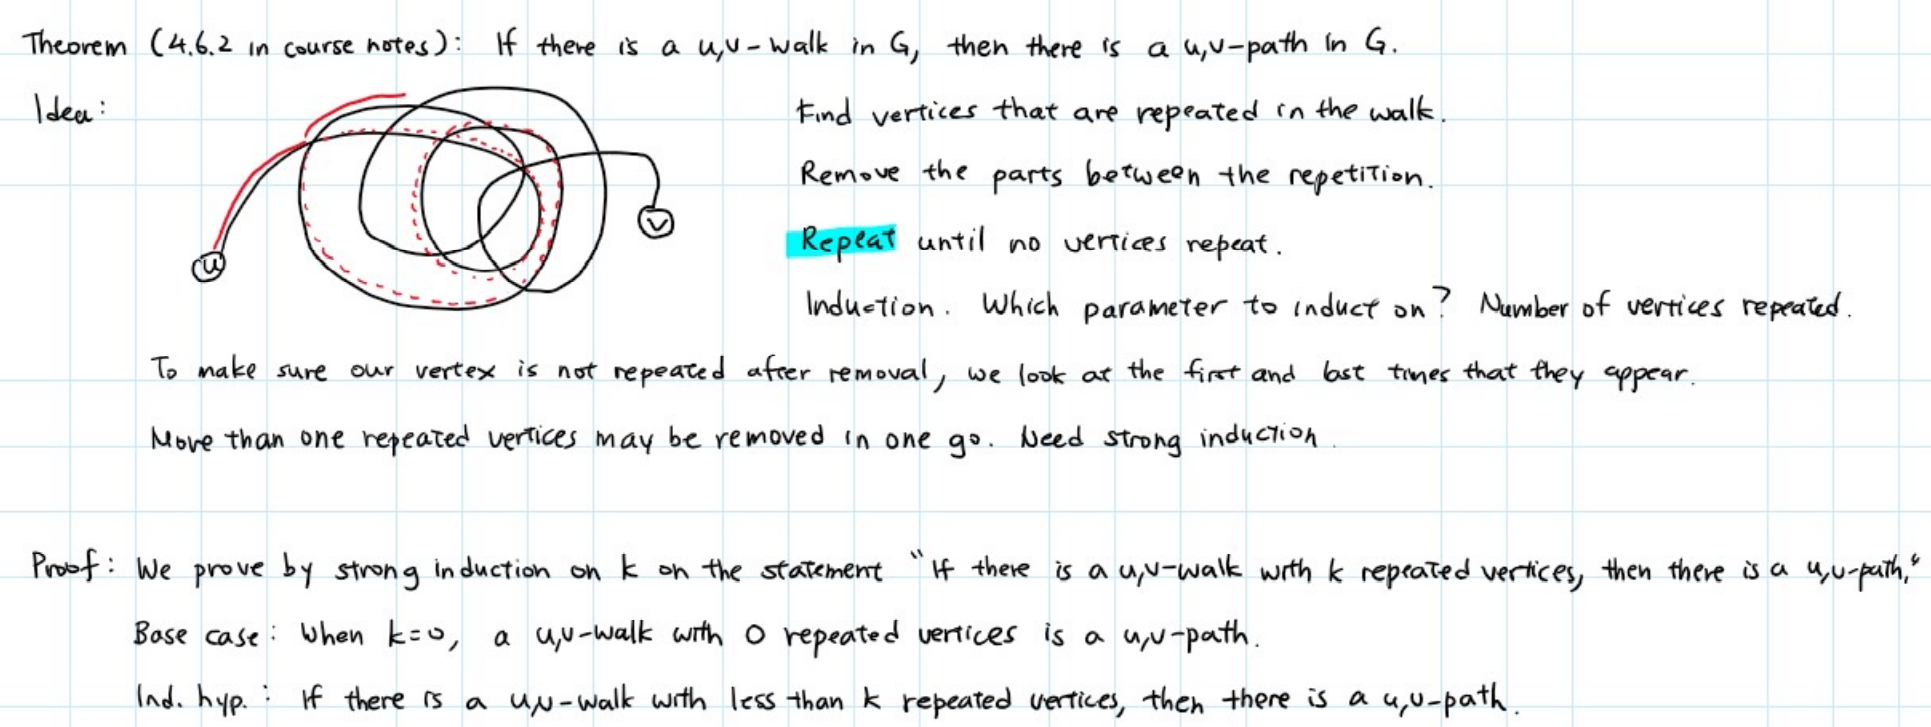 Theorem (4.6.2 in course notes): If there is a u,v-walk in G, then there is a u,v-path in G.
Idea:
Find vertices that are repeated in the walk.
Remove the parts between the repetition.
Repeat until no vertices repeat.
Induction. Which parameter to induct on? Number of vertices repeated.
u
v
To make sure our vertex is not repeated after removal, we look at the first and last times that they appear.
More than one repeated vertices may be removed in one go. Need strong induction.
Proof: We prove by strong induction on k on the statement "If there is a u,v-walk with k repeated vertices, then there is a u,v-path."
Base case: When k=0, a u,v-walk with 0 repeated vertices is a u,v-path.
Ind. hyp.: If there is a u,v-walk with less than k repeated vertices, then there is a u,v-path.